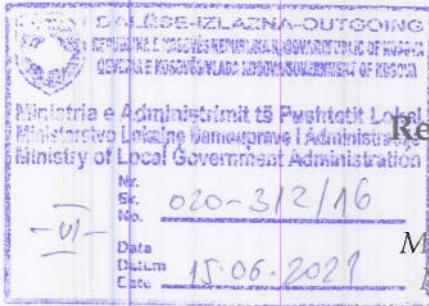 DALËSE-IZLAZNA-OUTGOING
REPUBLIKA E KOSOVËS/REPUBLIKA KOSOVA/REPUBLIC OF KOSOVA
QEVERIA E KOSOVËS/VLADA KOSOVA/GOVERNMENT OF KOSOVA
Ministria e Administrimit të Pushtetit Lokal
Ministarstvo Lokalne Samouprave i Administracije
Ministry of Local Government Administration
Re
Nr.
Br.
No.
020-312/16
-VI-
Data
Datum
Date
15.06.2021
M